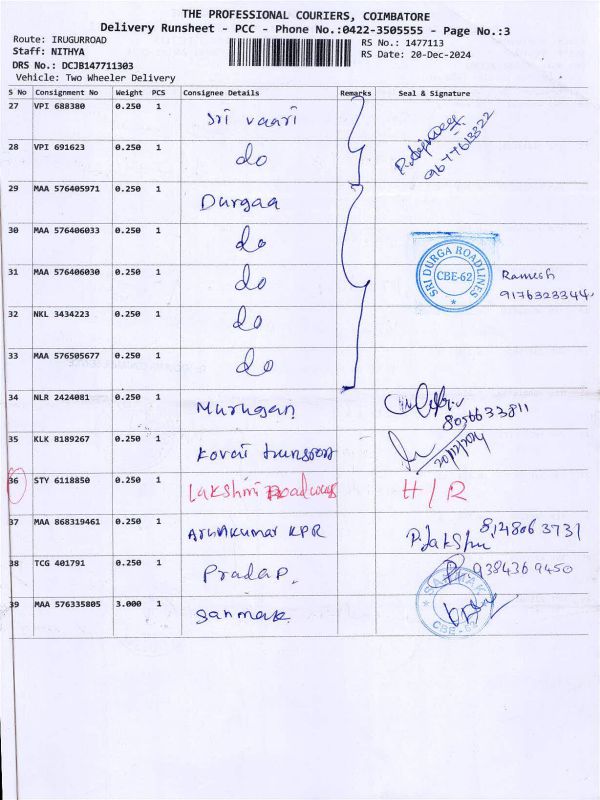 THE PROFESSIONAL COURIERS, COIMBATORE
Delivery Runsheet - PCC - Phone No.:0422-3505555 - Page No.:3
Route: IRUGURROAD RS No.: 1477113
Staff: NITHYA RS Date: 20-Dec-2024
DRS No.: DCJB147711303
Vehicle: Two Wheeler Delivery
S No Consignment No Weight PCS Consignee Details Remarks Seal & Signature
27 VPI 688380 0.250 1 Sri vaari
9677613322
28 VPI 691623 0.250 1 do
29 MAA 576405971 0.250 1 Durgaa
30 MAA 576406033 0.250 1 do
31 MAA 576406030 0.250 1 do SRI DURGA ROADLINES CBE-62 Ramesh
9176323344
32 NKL 3434223 0.250 1 do
33 MAA 576505677 0.250 1 do
34 NLR 2424081 0.250 1 Murugan 8056633811
35 KLK 8189267 0.250 1 Kovai transport
36 STY 6118850 0.250 1 Lakshmi Roadways H/R
37 MAA 868319461 0.250 1 Arunkumar KPR 8148063731
38 TCG 401791 0.250 1 Pradap. 9384369450
39 MAA 576335805 3.000 1 Sanmak SANMAK CBE-62